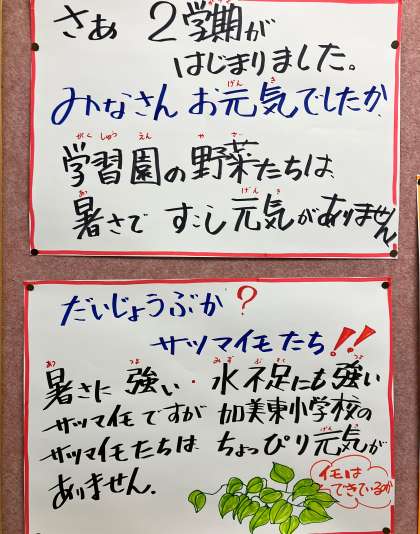 さあ 2学期が
はじまりました。
みなさん お元気でしたか
学習園の野菜たちは
暑さで すこし元気がありません
だいじょうぶか?
サツマイモたち!!
暑さに強い・水不足にも強い
サツマイモですが 加美東小学校の
サツマイモたちは ちょっぴり元気が
ありません.
イモは
できているか